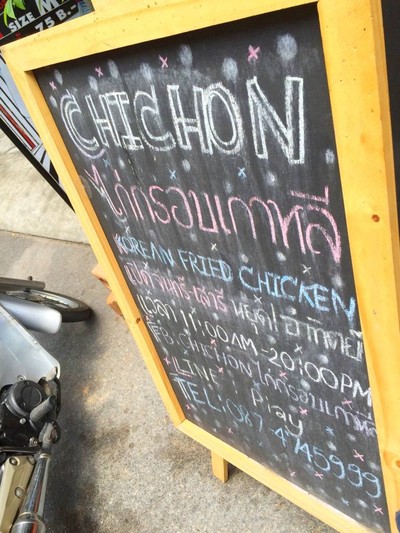 SIZE
75 B.-
CHICHON
ไก่กรอบเกาหลี
KOREAN FRIED CHICKEN
เปิด จันทร์-เสาร์ หยุด อาทิตย์
เวลา 11:00AM-20:00PM
FB:CHICHONไก่กรอบเกาหลี
LINE : Play
TEL:087-4745999